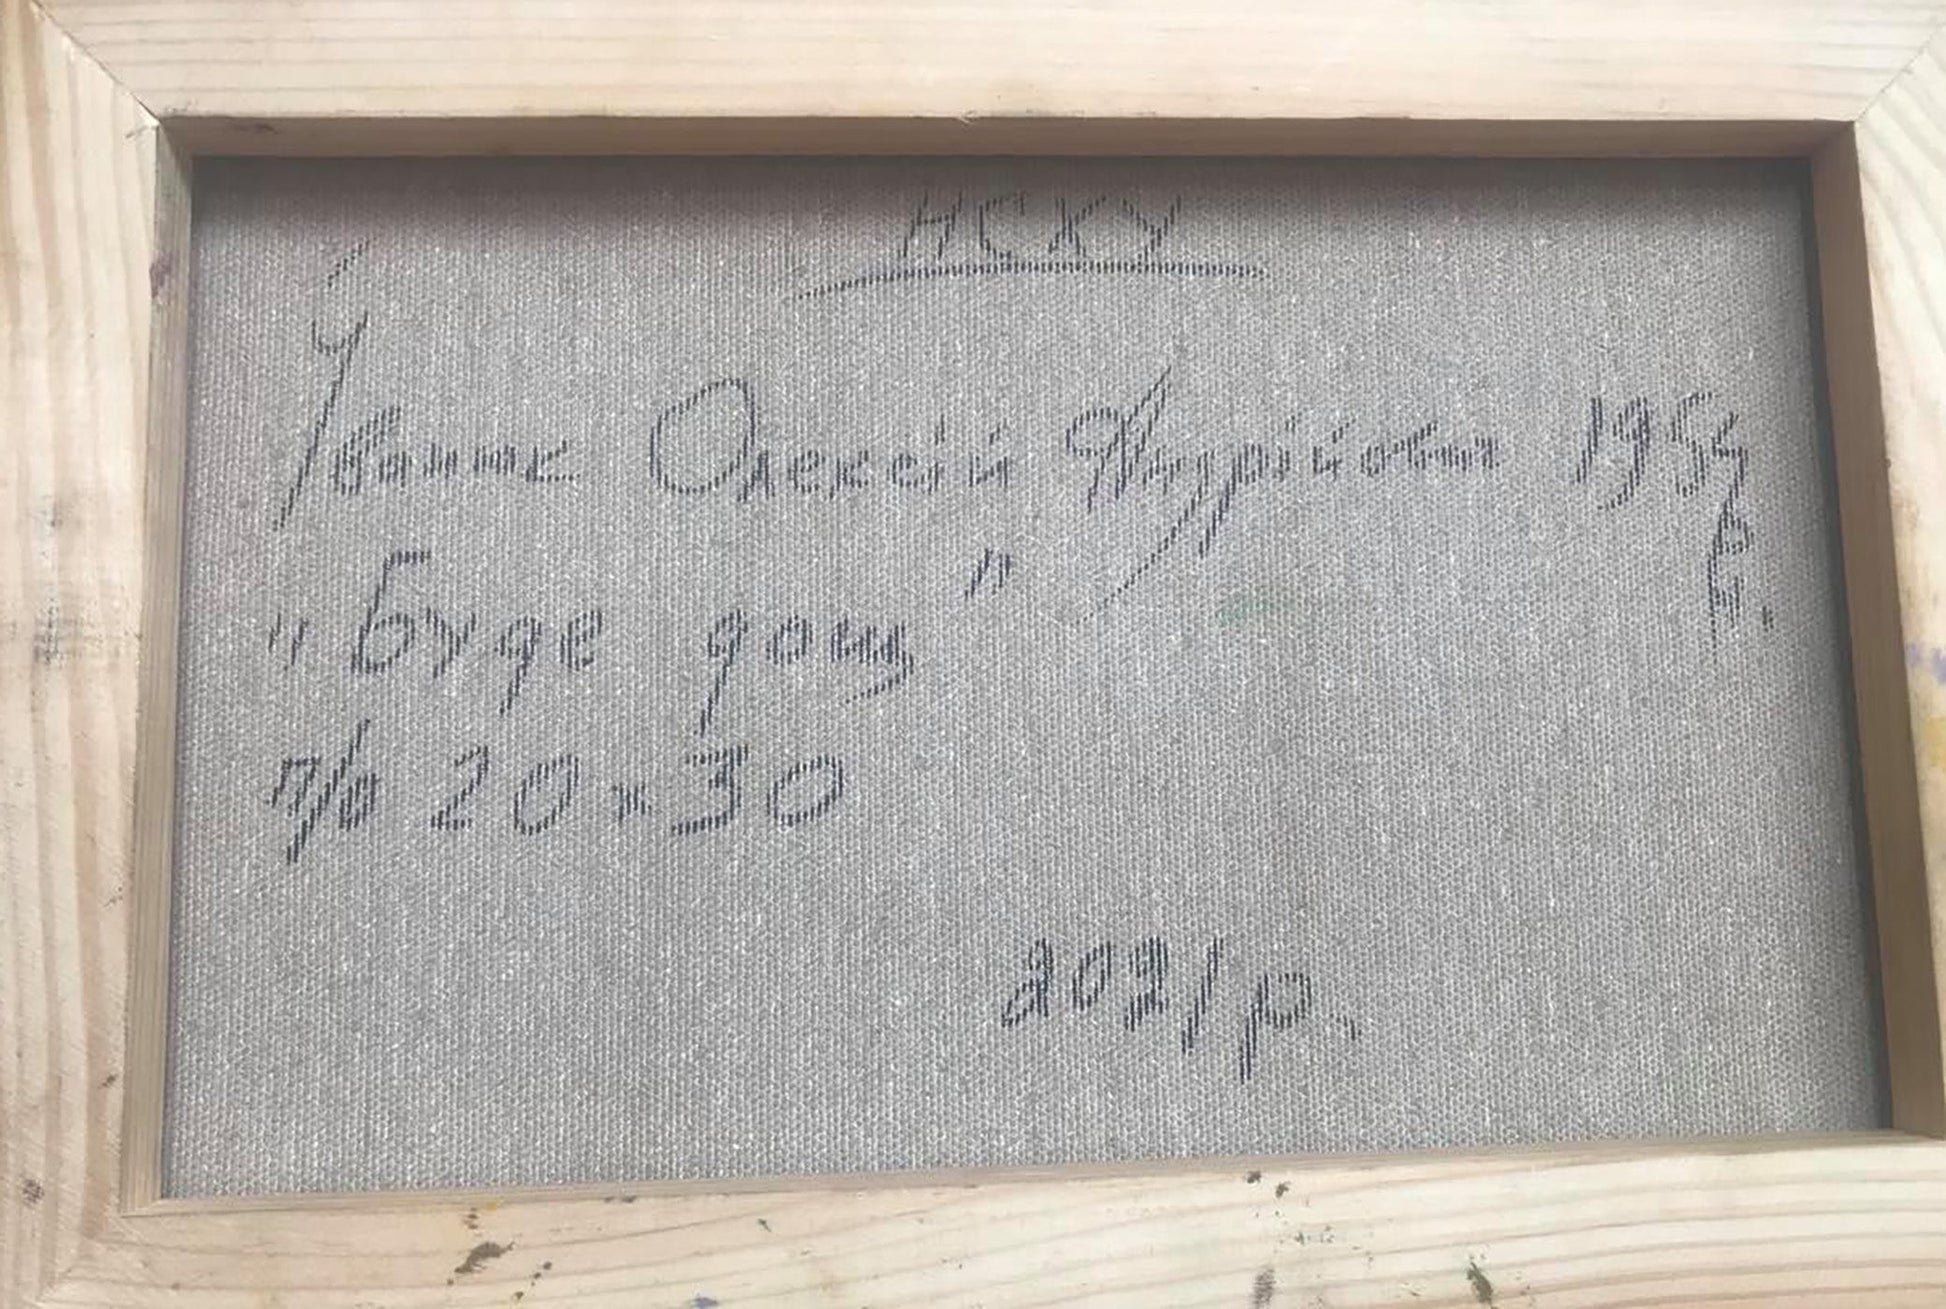 НСХУ
Іванюк Олексій Юрійович 195
"Буде дощ"
п/о 20х30
2021р.